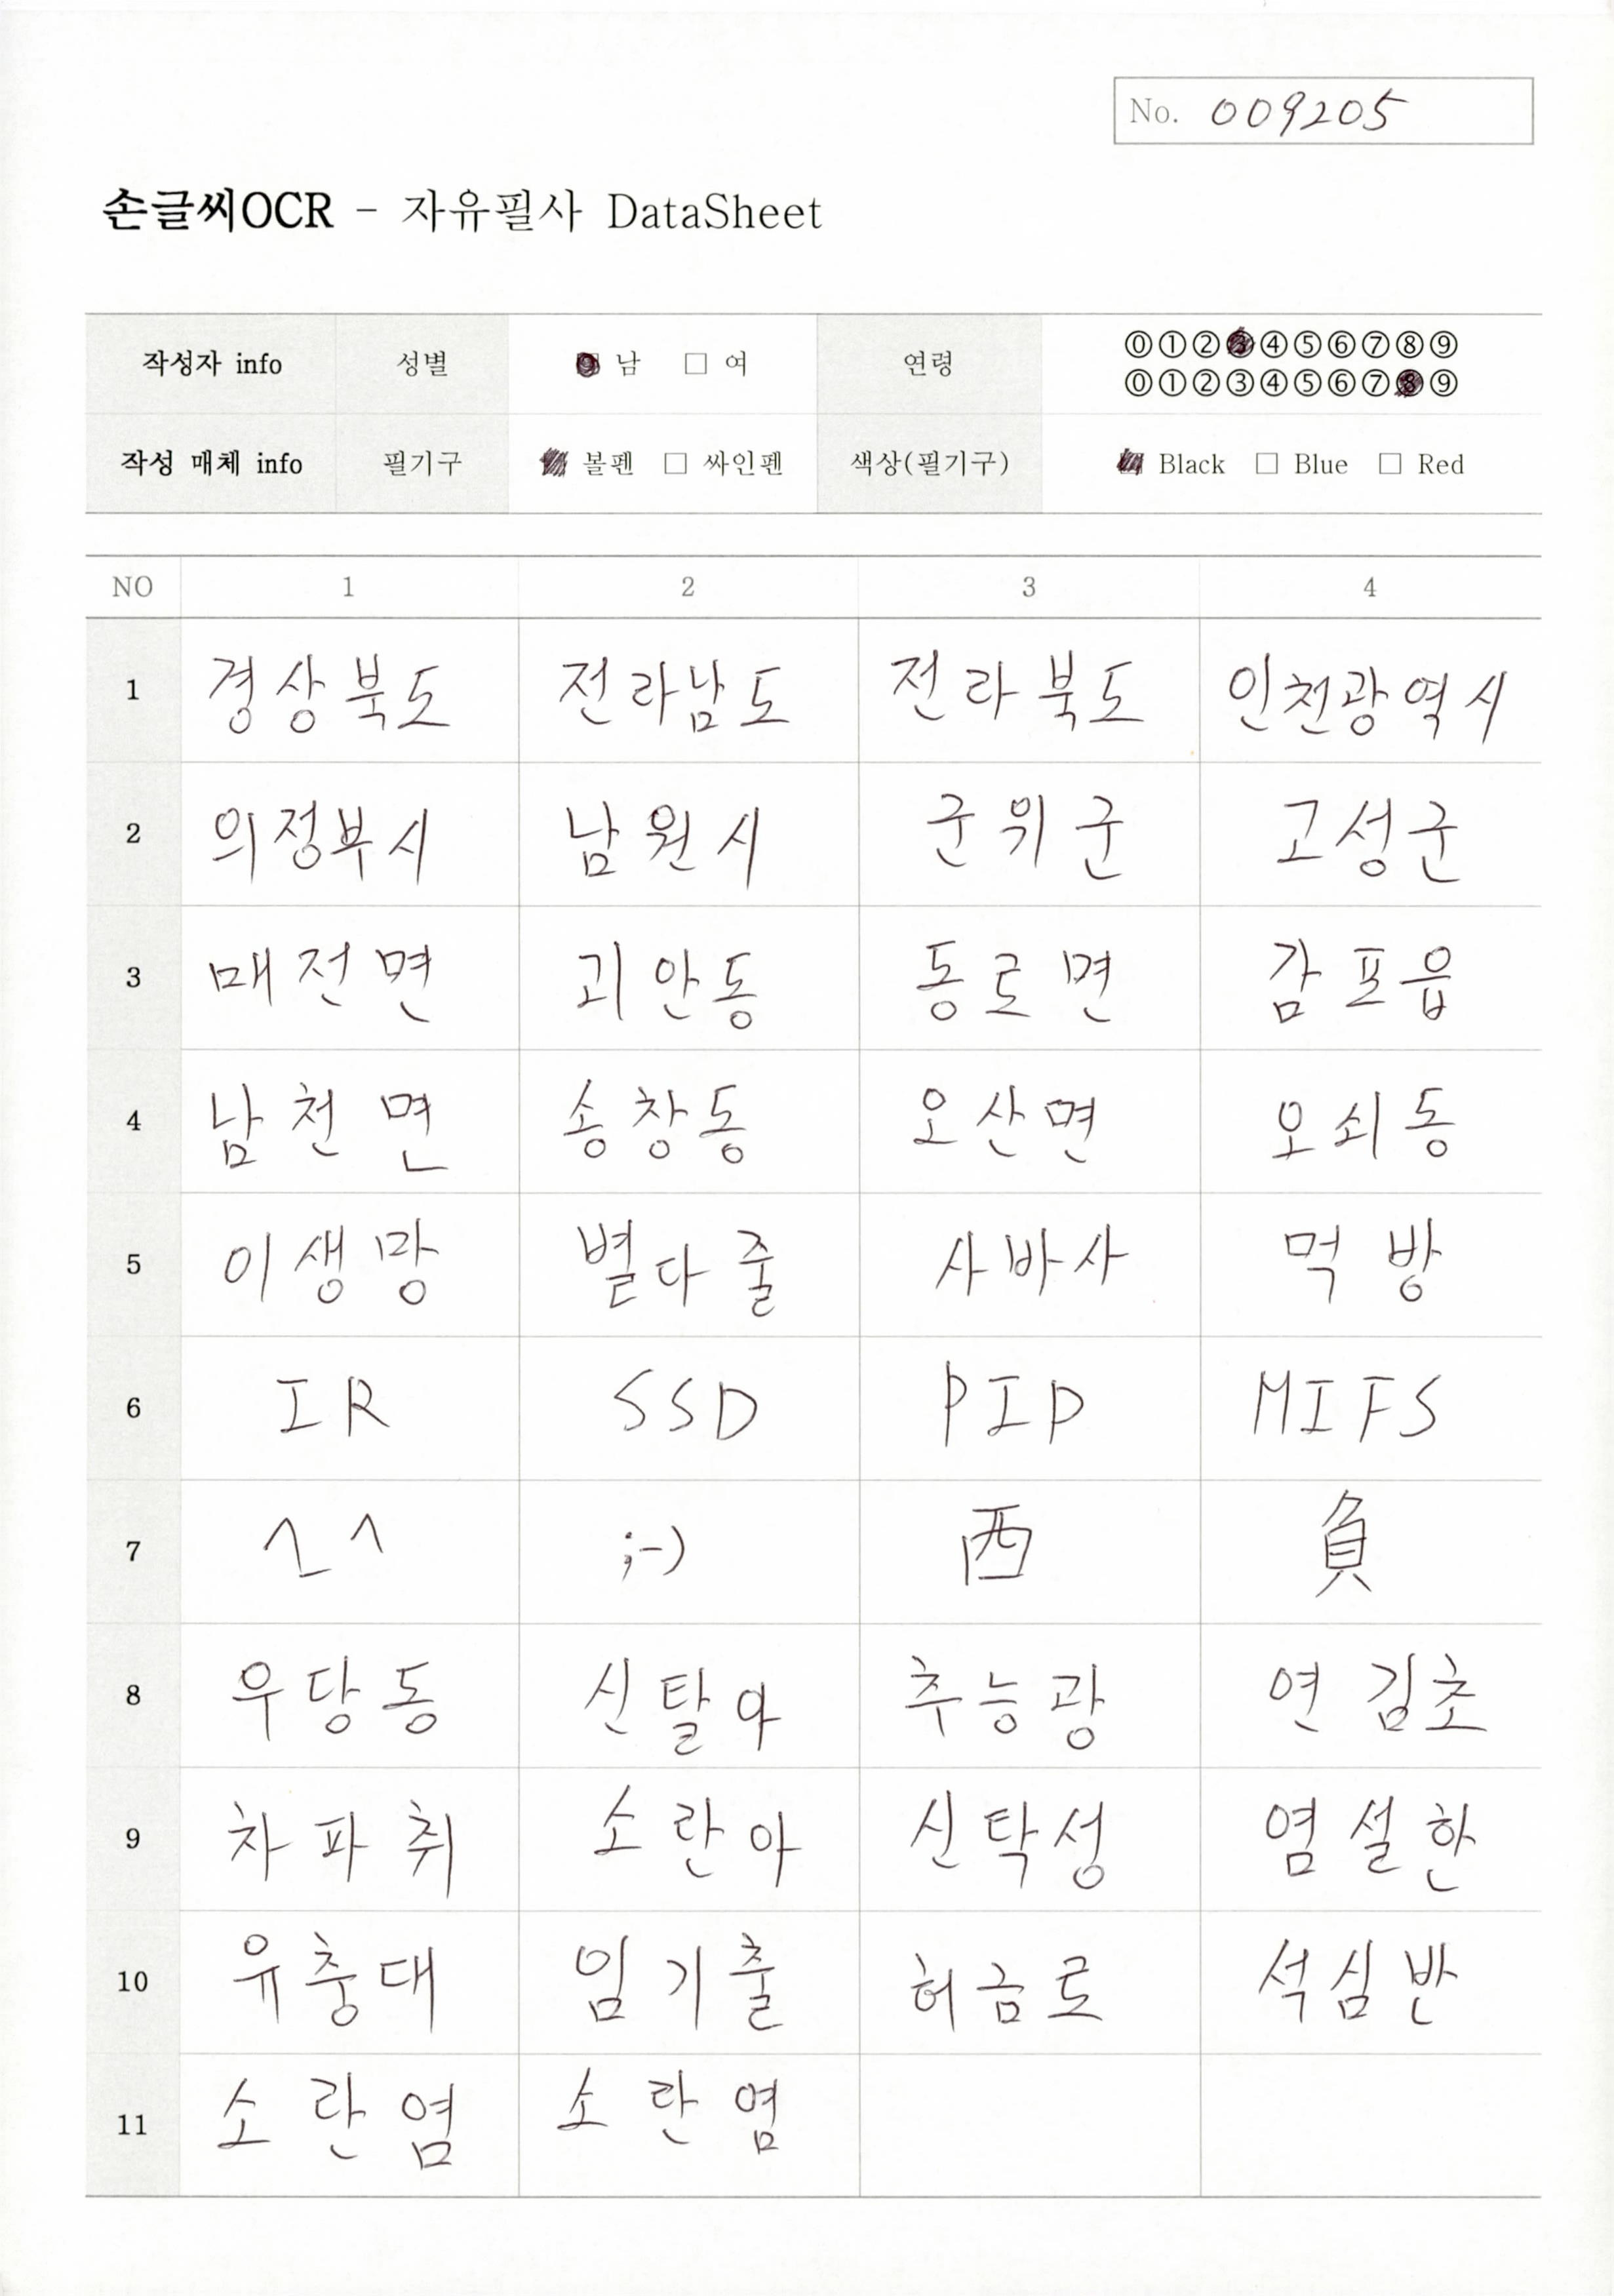 No. 009205
손글씨OCR - 자유필사 DataSheet
작성자 info 성별 남 □ 여 연령 ⓪①②③④⑤⑥⑦⑧⑨
⓪①②③④⑤⑥⑦⑧⑨
작성 매체 info 필기구 볼펜 □ 싸인펜 색상(필기구) Black □ Blue □ Red
NO 1 2 3 4
1 경상북도 전라남도 전라북도 인천광역시
2 의정부시 남원시 군위군 고성군
3 매전면 괴안동 동로면 감포읍
4 남천면 송창동 오산면 오쇠동
5 이생망 별다줄 사바사 먹방
6 IR SSD PIP MIFS
7 ^_^ ;-) 西 負
8 우당동 신탈아 추능광 연김초
9 차파취 소란아 신탁성 염설한
10 유충대 임기출 허금로 석심반
11 소란염 소란염